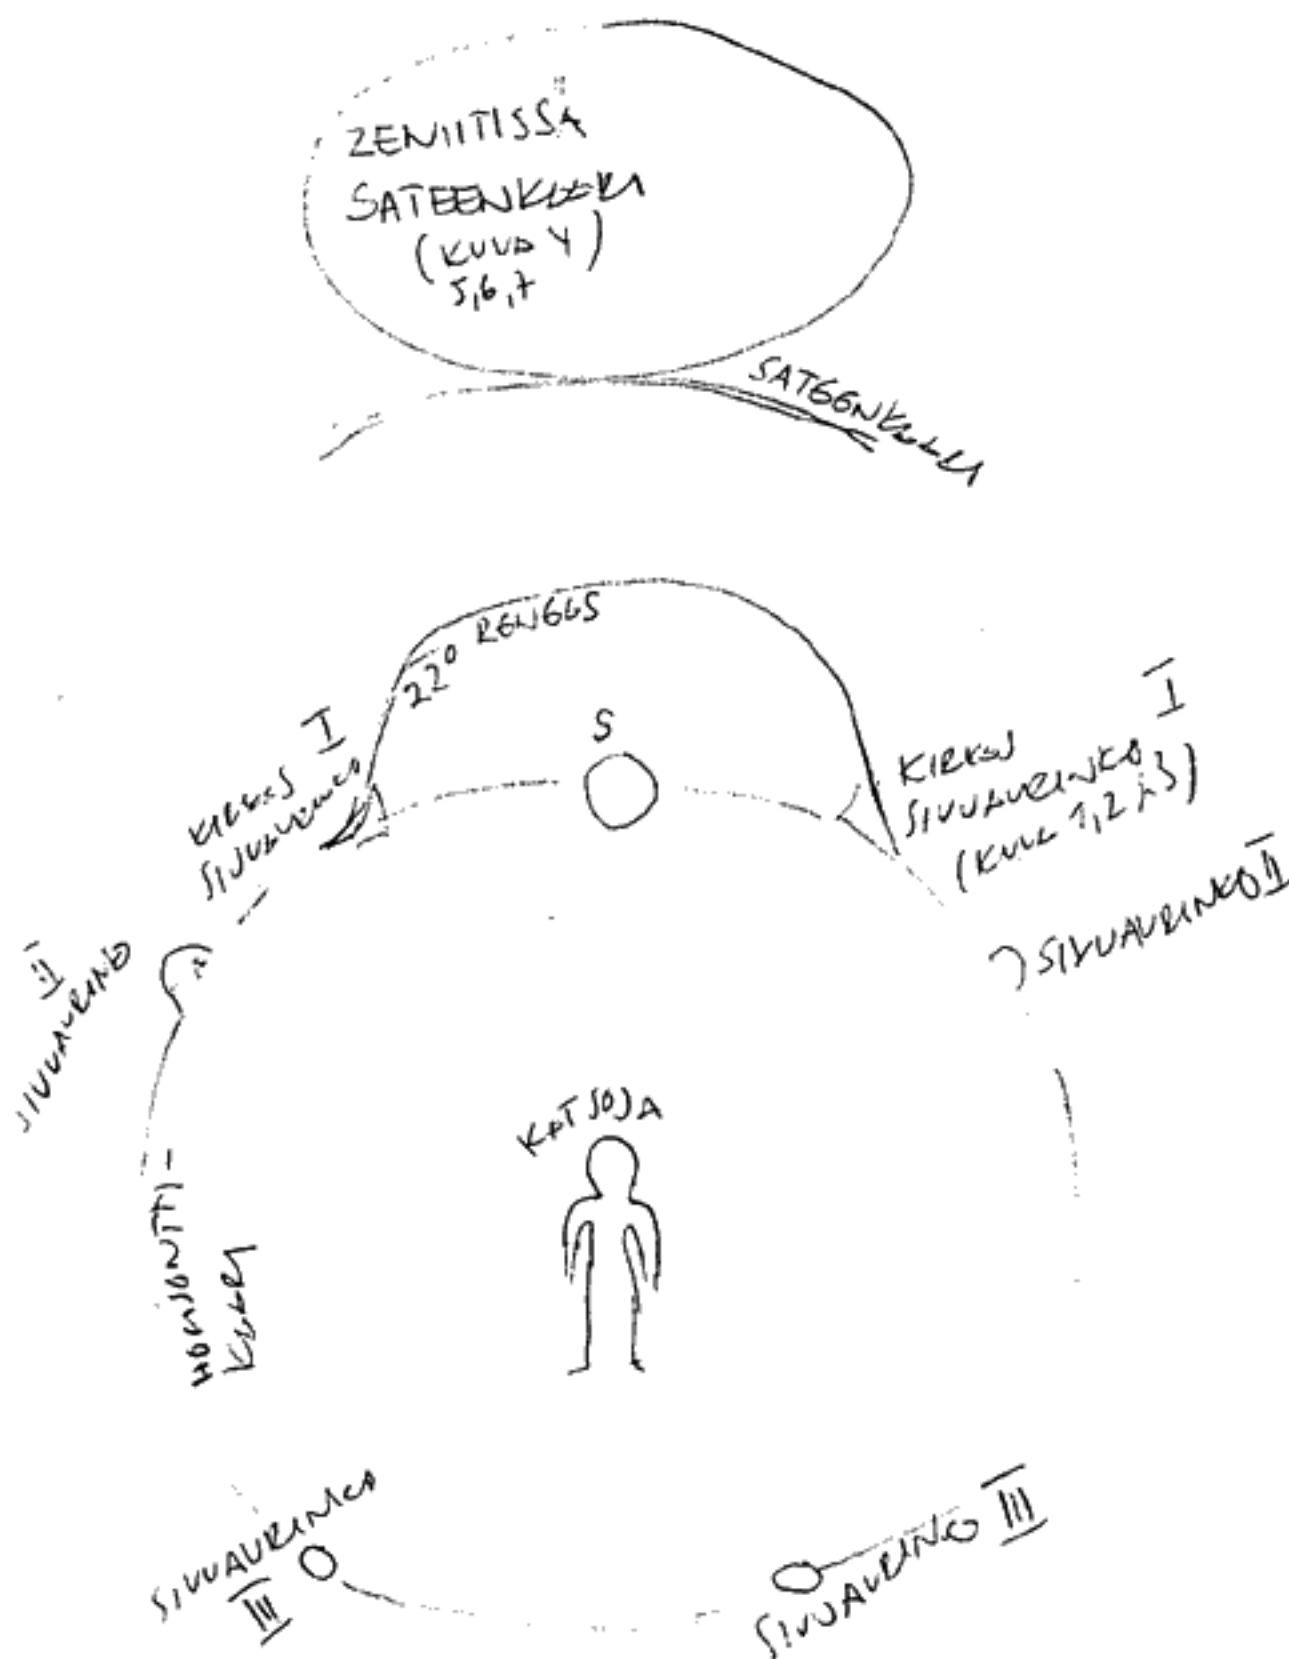 ZENIITISSÄ
SATEENKAARI
(KUVA 4)
5,6,7
SATEENKAARI
22° RENGAS
S
KIRKAS I
SIVUAURINKO
KIRKAS I
SIVUAURINKO
(KUVA 1,2 ja 3)
II
SIVUAURINKO
SIVUAURINKO II
KATSOJA
HORISONTTI-
KAARI
SIVUAURINKO
III
SIVUAURINKO III